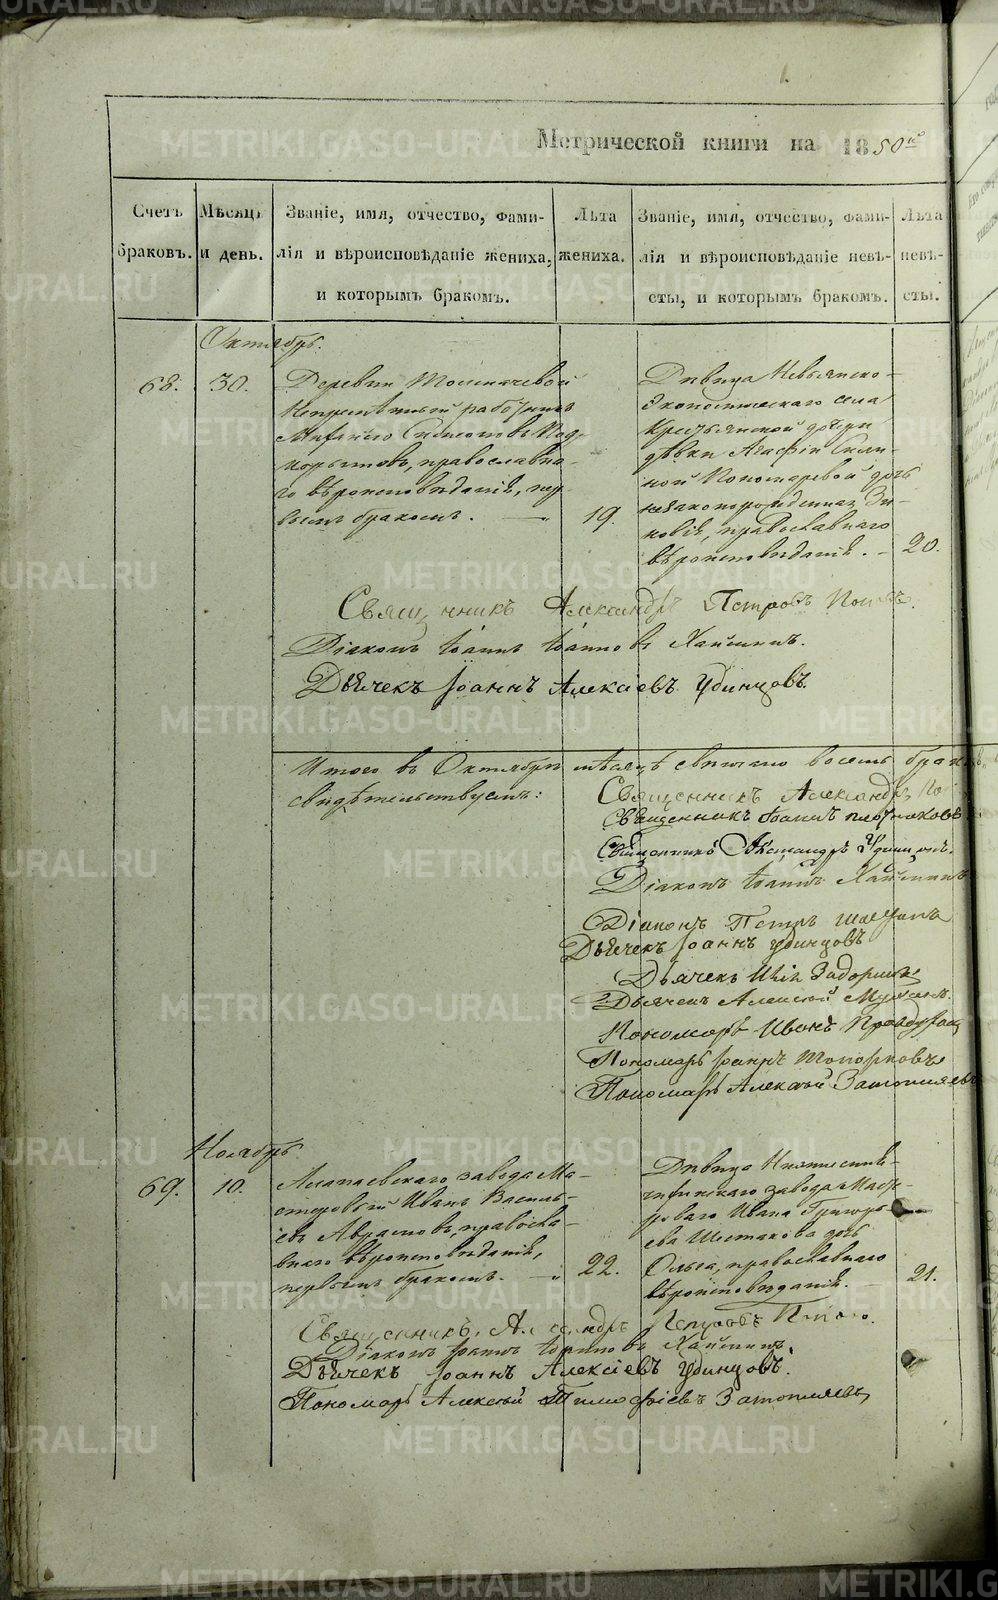 Метрической книги на 1850й
Счетъ браковъ.
Мѣсяцъ и день.
Званіе, имя, отчество, фами-
лія и вѣроисповѣданіе жениха,
и которымъ бракомъ.
Лѣта жениха.
Званіе, имя, отчество, фами-
лія и вѣроисповѣданіе невѣ-
сты, и которымъ бракомъ.
Лѣта невѣ-
сты.
Октябрь.
68.
30.
Деревни Толмачевой
непремѣнный работникъ
Подкорытовъ, православна-
го вѣроисповѣданія, пер-
вымъ бракомъ.
19.
Дѣвица Невьянско-
села
крестьянской дочери
дѣвки Агафіи
Пономаревой дочь
незаконорожденная Зи-
новія, православнаго
вѣроисповѣданія.
20.
Священникъ Александръ Петровъ Поповъ.
Діаконъ Іоаннъ Іоанновъ Хаминъ.
Дьячекъ Іоаннъ Алексіевъ Удинцовъ.
Итого въ Октябрѣ мѣсяцѣ свѣнчано восемь браковъ
свидѣтельствуемъ:
Священникъ Александръ По
Священникъ Іоаннъ Плотниковъ
Священникъ Александръ Удинцовъ.
Діаконъ Іоаннъ Хаминъ
Діаконъ Петръ
Дьячекъ Іоаннъ Удинцовъ
Дьячекъ Задоринъ
Дьячекъ Алексей
Пономарь Иванъ
Пономарь Іоаннъ Топорковъ
Пономарь Алексей Затопляевъ
Ноябрь.
69.
10.
Алапаевскаго завода Ма-
стеровый Иванъ Василь-
евъ Абрамовъ, правосла-
внаго вѣроисповѣданія,
первымъ бракомъ.
22.
Дѣвица Нижнесиня-
чихинскаго завода Масте-
роваго Ивана Григорь-
ева Шестакова дочь
Ольга, православнаго
вѣроисповѣданія.
21.
Священникъ Александръ Петровъ Поповъ.
Діаконъ Іоаннъ Іоанновъ Хаминъ.
Дьячекъ Іоаннъ Алексіевъ Удинцовъ.
Пономарь Алексей Тимофіевъ Затопляевъ
METRIKI.GASO-URAL.RU